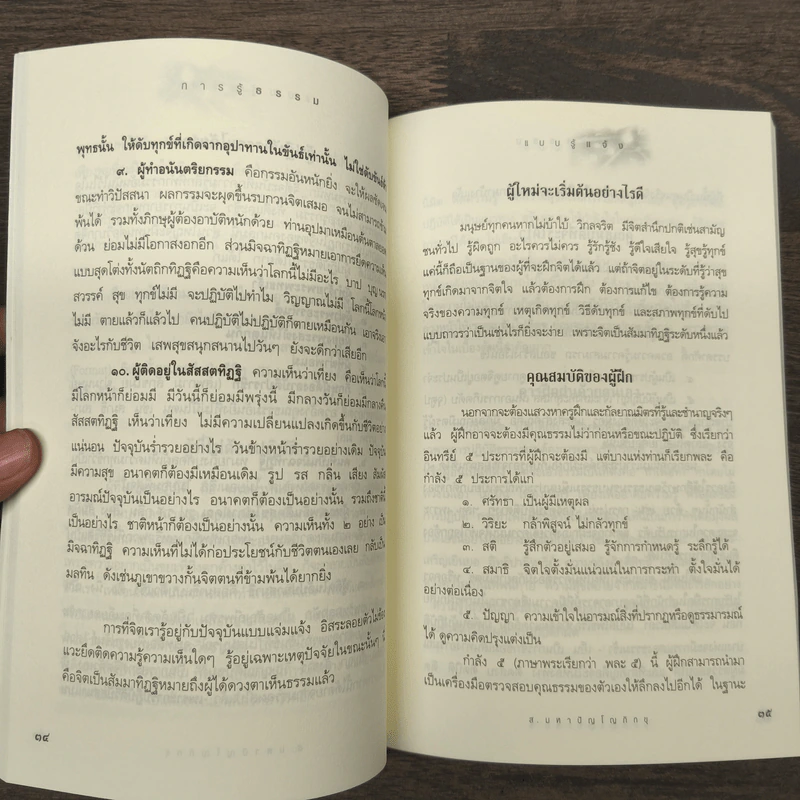 การรู้ธรรม
พุทธนั้น ให้ดับทุกข์ที่เกิดจากอุปาทานในขันธ์เท่านั้น ไม่ใช่ดับขันธ์
๙. ผู้ทำอนันตริยกรรม คือกรรมอันหนักยิ่ง จะให้ผล
ขณะทำวิปัสสนา ผลกรรมจะผุดขึ้นรบกวนจิตเสมอ จนไม่สามารถ
พ้นได้ รวมทั้งภิกษุผู้ต้องอาบัติหนักด้วย ท่านอุปมาเหมือนต้นตาล
ด้วน ย่อมไม่มีโอกาสงอกอีก ส่วนมิจฉาทิฏฐิหมายเอาการยึดความเห็น
แบบสุดโต่งทั้งนัตถิกทิฏฐิคือความเห็นว่าโลกนี้ไม่มีอะไร บาป บุญ นรก
สวรรค์ สุข ทุกข์ไม่มี จะปฏิบัติไปทำไม วิญญาณไม่มี โลกนี้โลกหน้า
ไม่มี ตายแล้วก็แล้วไป คนปฏิบัติไม่ปฏิบัติก็ตายเหมือนกัน เอาจริงเอา
จังอะไรกับชีวิต เสพสุขสนุกสนานไปวันๆ ยังจะดีกว่าเสียอีก
๑๐. ผู้ติดอยู่ในสัสสตทิฏฐิ ความเห็นว่าเที่ยง คือเห็นว่าโลกนี้
มีโลกหน้าก็ย่อมมี มีวันนี้ก็ย่อมมีพรุ่งนี้ มีกลางวันก็ย่อมมีกลางคืน
สัสสตทิฏฐิ เห็นว่าเที่ยง ไม่มีความเปลี่ยนแปลงเกิดขึ้นกับชีวิตอย่าง
แน่นอน ปัจจุบันร่ำรวยอย่างไร วันข้างหน้าร่ำรวยอย่างเดิม ปัจจุบัน
มีความสุข อนาคตก็ต้องมีเหมือนเดิม รูป รส กลิ่น เสียง สัมผัส
อารมณ์ปัจจุบันเป็นอย่างไร อนาคตก็ต้องเป็นอย่างนั้น รวมถึงชาตินี้
เป็นอย่างไร ชาติหน้าก็ต้องเป็นอย่างนั้น ความเห็นทั้ง ๒ อย่าง เป็น
มิจฉาทิฏฐิ ความเห็นที่ไม่ได้ก่อประโยชน์กับชีวิตตนเองเลย กลับเป็น
มลทิน ดังเช่นภูเขาขวางกั้นจิตตนที่ข้ามพ้นได้ยากยิ่ง
การที่จิตเรารู้อยู่กับปัจจุบันแบบแจ่มแจ้ง อิสระลอยตัวไม่ข้อง
แวะยึดติดความรู้ความเห็นใดๆ รู้อยู่เฉพาะเหตุปัจจัยในขณะนั้นๆ นี้
คือจิตเป็นสัมมาทิฏฐิหมายถึงผู้ได้ดวงตาเห็นธรรมแล้ว
๑๔
แบบรู้แจ้ง
ผู้ใหม่จะเริ่มต้นอย่างไรดี
มนุษย์ทุกคนหากไม่บ้าใบ้ วิกลจริต มีจิตสำนึกปกติเช่นสามัญ
ชนทั่วไป รู้ผิดถูก อะไรควรไม่ควร รู้รักรู้ชัง รู้ดีใจเสียใจ รู้สุขรู้ทุกข์
แค่นี้ก็ถือเป็นฐานของผู้ที่จะฝึกจิตได้แล้ว แต่ถ้าจิตอยู่ในระดับที่รู้ว่าสุข
ทุกข์เกิดมาจากจิตใจ แล้วต้องการฝึก ต้องการแก้ไข ต้องการรู้ความ
จริงของความทุกข์ เหตุเกิดทุกข์ วิธีดับทุกข์ และสภาพทุกข์ที่ดับไป
แบบถาวรว่าเป็นเช่นไรก็ยิ่งจะง่าย เพราะจิตเป็นสัมมาทิฏฐิระดับหนึ่งแล้ว
คุณสมบัติของผู้ฝึก
นอกจากจะต้องแสวงหาครูฝึกและกัลยาณมิตรที่รู้และชำนาญจริงๆ
แล้ว ผู้ฝึกอาจจะต้องมีคุณธรรมไม่ว่าก่อนหรือขณะปฏิบัติ ซึ่งเรียกว่า
อินทรีย์ ๕ ประการที่ผู้ฝึกจะต้องมี แต่บางแห่งท่านก็เรียกพละ คือ
กำลัง ๕ ประการได้แก่
๑. ศรัทธา เป็นผู้มีเหตุผล
๒. วิริยะ กล้าพิสูจน์ ไม่กลัวทุกข์
๓. สติ รู้สึกตัวอยู่เสมอ รู้จักการกำหนดรู้ ระลึกรู้ได้
๔. สมาธิ จิตใจตั้งมั่นแน่วแน่ในการกระทำ ตั้งใจมั่นได้
อย่างต่อเนื่อง
๕. ปัญญา ความเข้าใจในอารมณ์สิ่งที่ปรากฏหรือดูธรรมารมณ์
ได้ ดูความคิดปรุงแต่งเป็น
กำลัง ๕ (ภาษาพระเรียกว่า พละ ๕) นี้ ผู้ฝึกสามารถนำมา
เป็นเครื่องมือตรวจสอบคุณธรรมของตัวเองให้ลึกลงไปอีกได้ ในฐานะ
ส.มหาปัญโญภิกขุ
๑๕